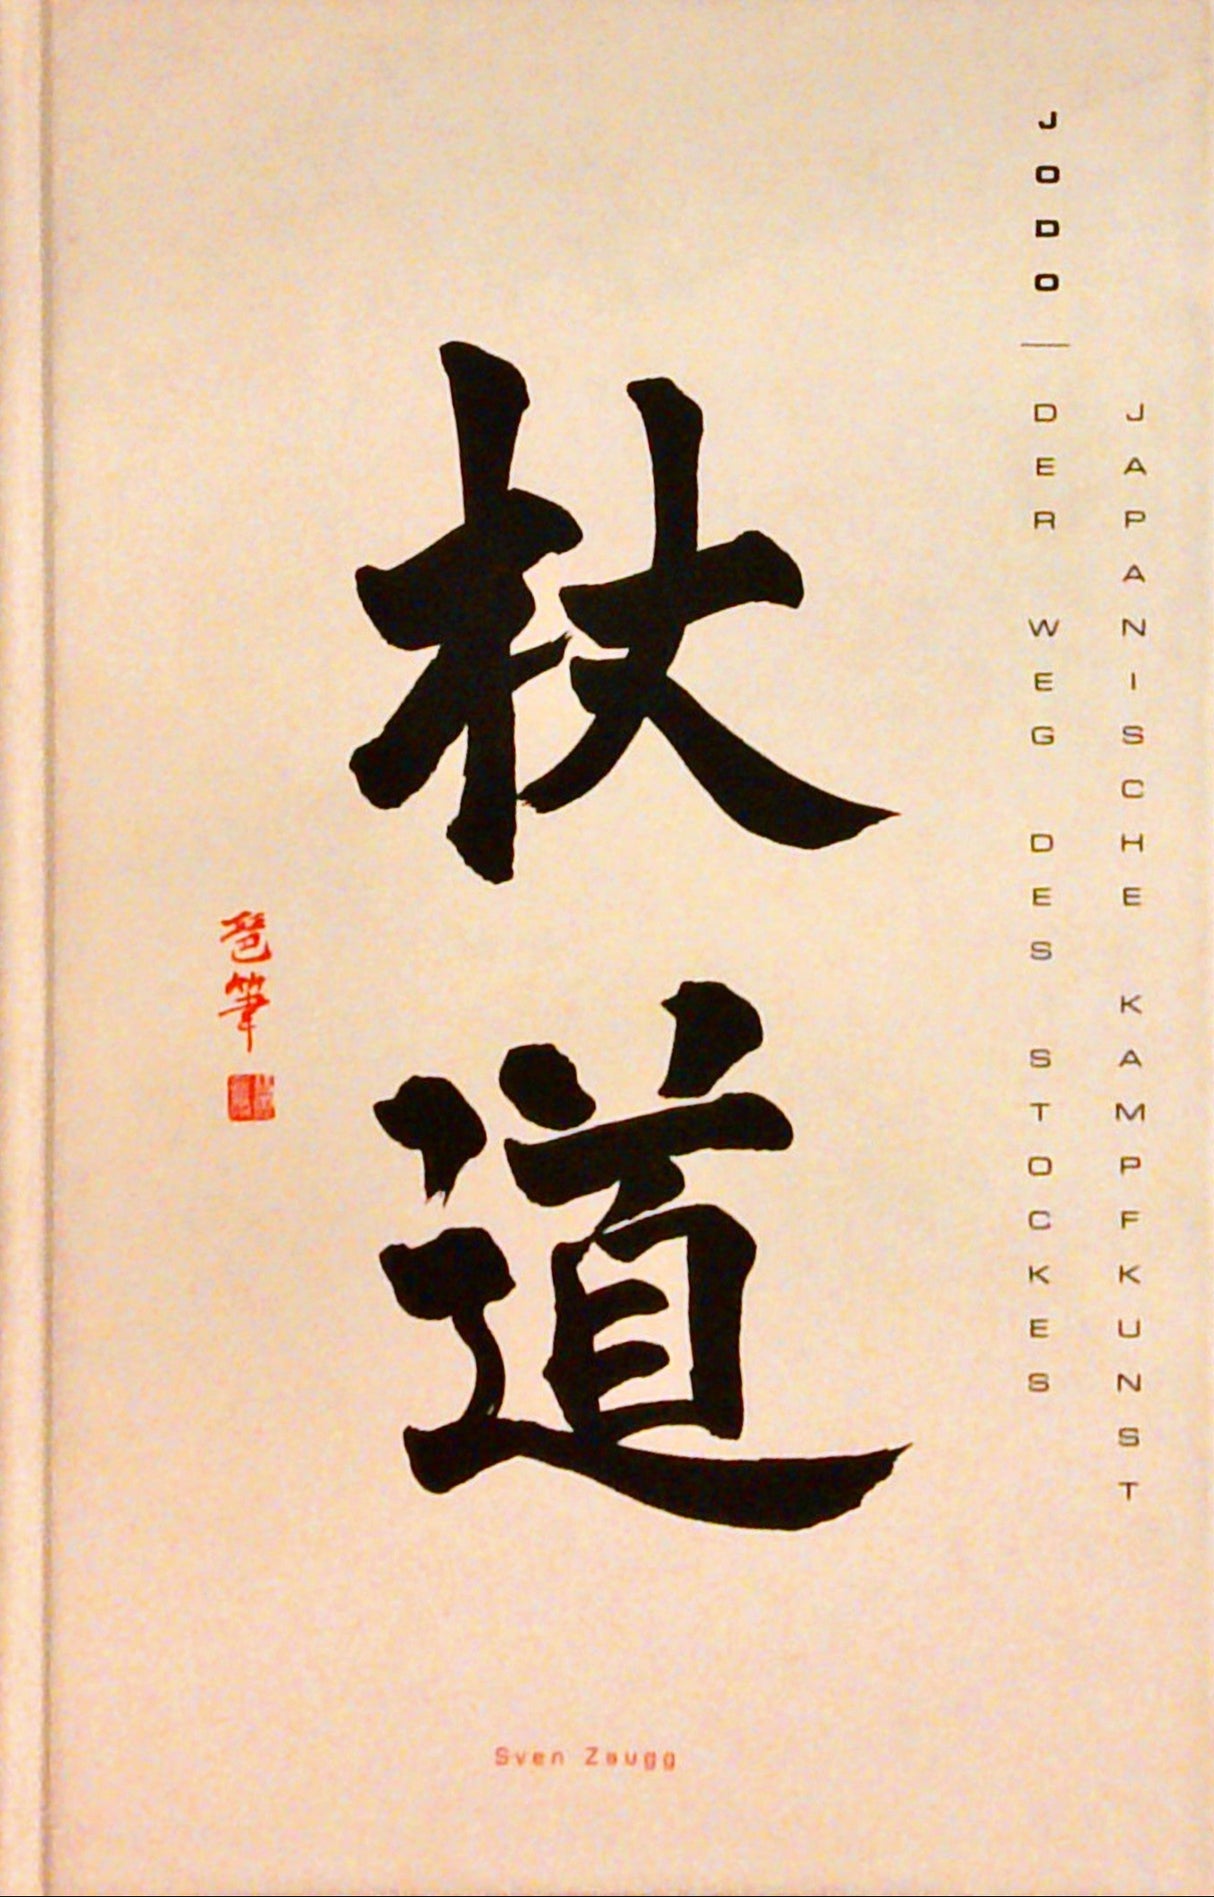 JODO
DER WEG DES STOCKES
JAPANISCHE KAMPFKUNST
杖道
筆
Sven Zaugg